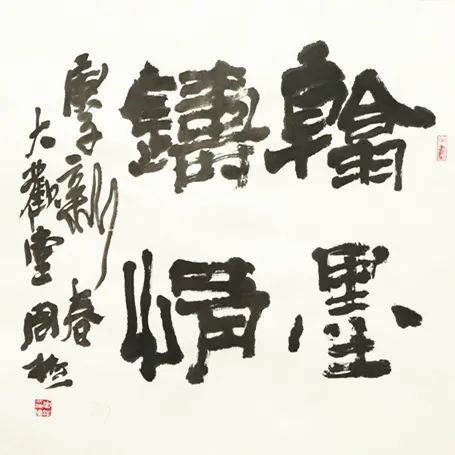 翰墨
鑄情
庚子新春
大觀堂周拯